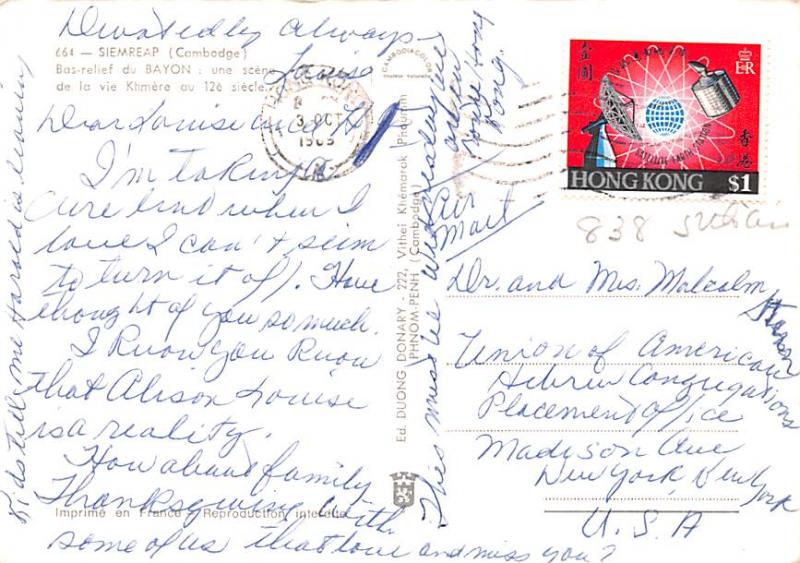 Devotedly Always
Louise
664 — SIEMREAP (Cambodge)
Bas-relief du BAYON : une scène
de la vie Khmère au 12è siècle.
Dear Louise and H
I'm taking a
cure and when I
love I can't seem
to turn it off. Have
thought of you so much.
I know you know
that Alison Louise
is a reality.
How about family
Thanksgiving with
some of us that love and miss you?
Kids tell me Harold is leaving
Imprimé en France / Reproduction interdite
CAMBODIACOLOR
Ed. DUONG DONARY - 222, Vithei Khémarak Phoumin
PHNOM-PENH (Cambodge)
This must be Wednesday
Hong
Kong.
3 OCT
HONG KONG $1
SATELLITE EARTH STATION
香港
E R
Air
Mail
838
Dr. and Mrs. Malcolm
Stern
Union of American
Hebrew Congregations
Placement Office
Madison Ave
New York, New York
U. S. A